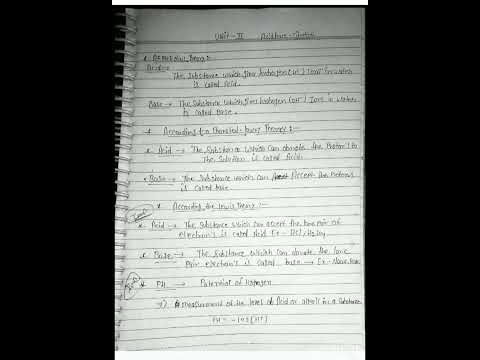 Unit - II
* Arrhenius Theory :-
Acid →
The Substance which give hydrogen (H+) Ions in water
is called Acid.
Base → The Substance which give hydrogen (OH-) Ions in water
is called base.
* According to Bronsted-lowry Theory :-
* Acid → The Substance which can donate the Proton's to
the Solution is called Acid.
* Base → The Substance which can Accept the Protons
is called base
* According the lewis Theory :-
* Acid → The Substance which can accept the lone Pair of
electron's is called Acid Ex -
* Base → The Substance which can donate the lone
Pair electron's is called base → Ex -
* PH → Potential of Hydrogen
⇒ measurement of the level of Acid or alkali in a Substance
PH = - log [H+]